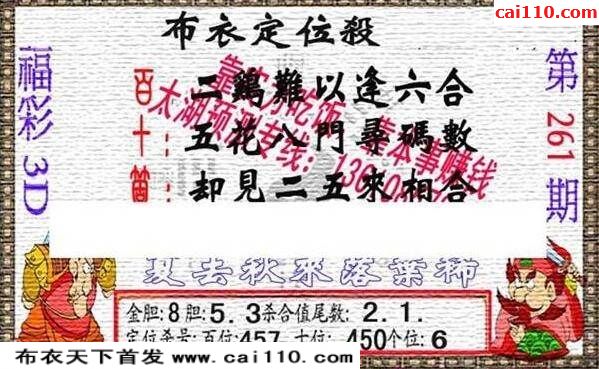 cai110.com
布衣定位殺
福彩3D
第261期
百：二鷄難以逢六合
十：五花八門尋碼數
個：却見二五來相合
夏去秋來落葉稀
金胆:8胆:5.3杀合值尾数:2.1.
定位杀号:百位:457 十位:450个位:6
布衣天下首发 www.cai110.com